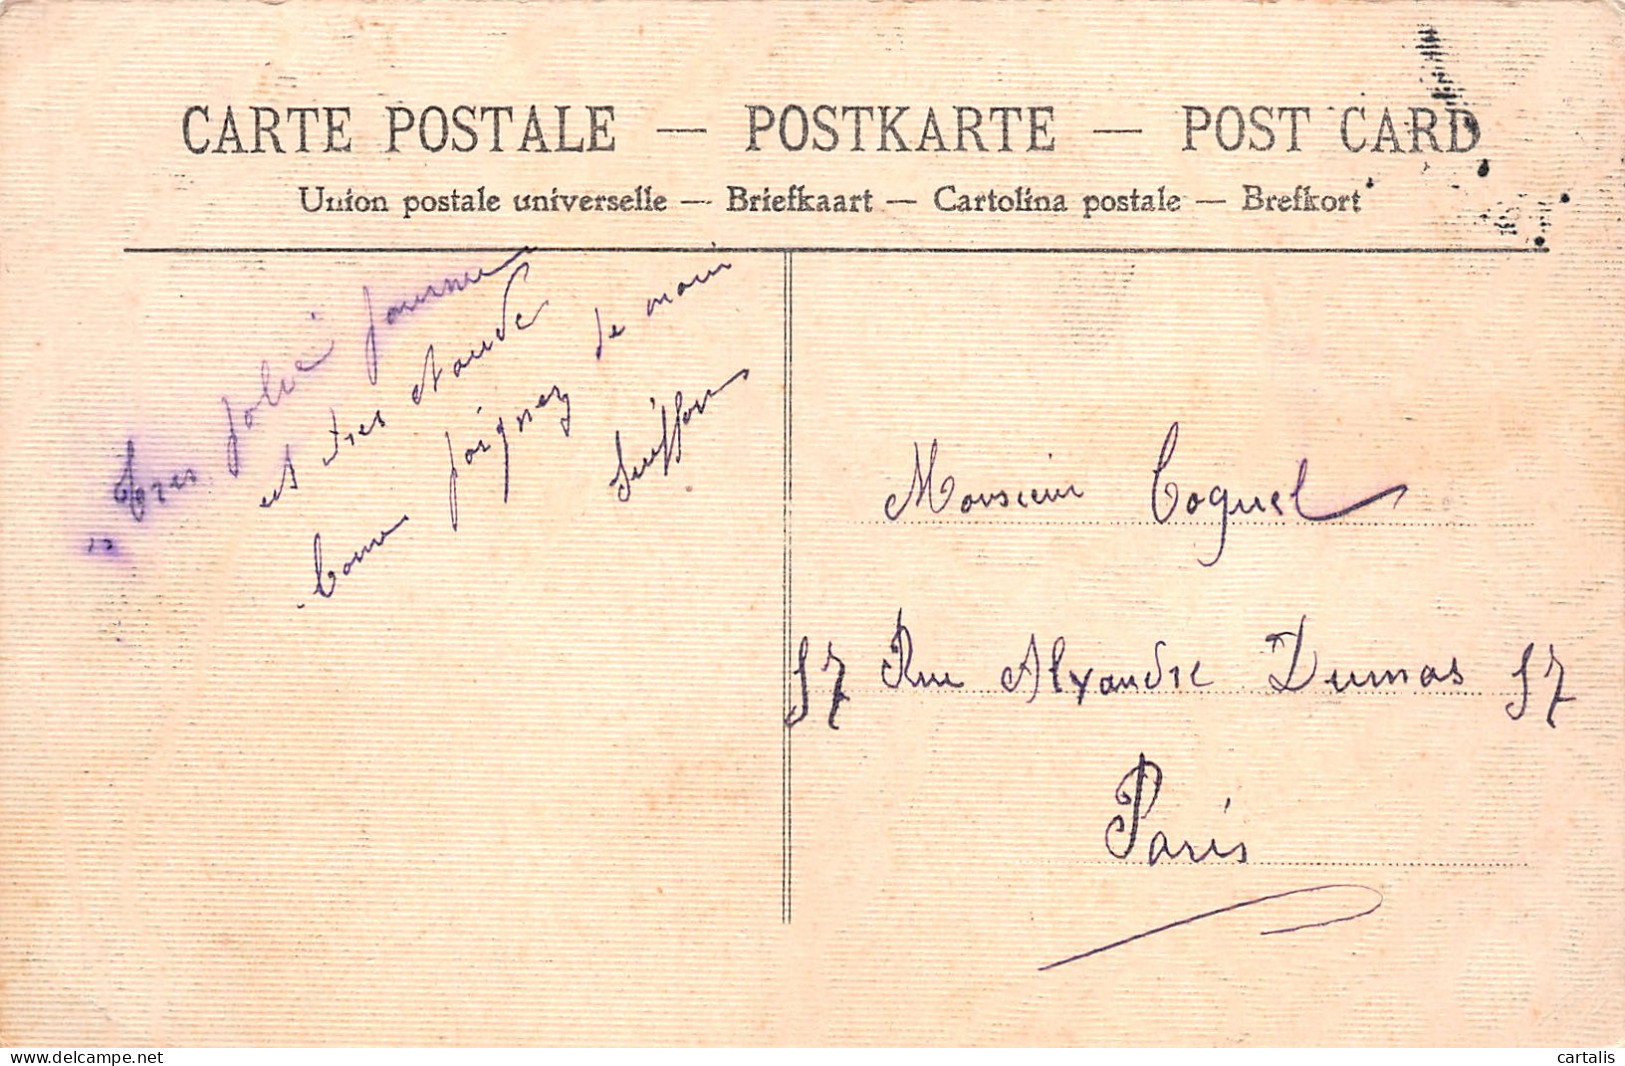 CARTE POSTALE — POSTKARTE — POST CARD
Union postale universelle — Briefkaart — Cartolina postale — Brefkort
Tres jolie journee
et tres chaude
bonne poignez de main
Monsieur Coquel
57 Rue Alxandre Dumas 57
Paris
www.delcampe.net
cartalis